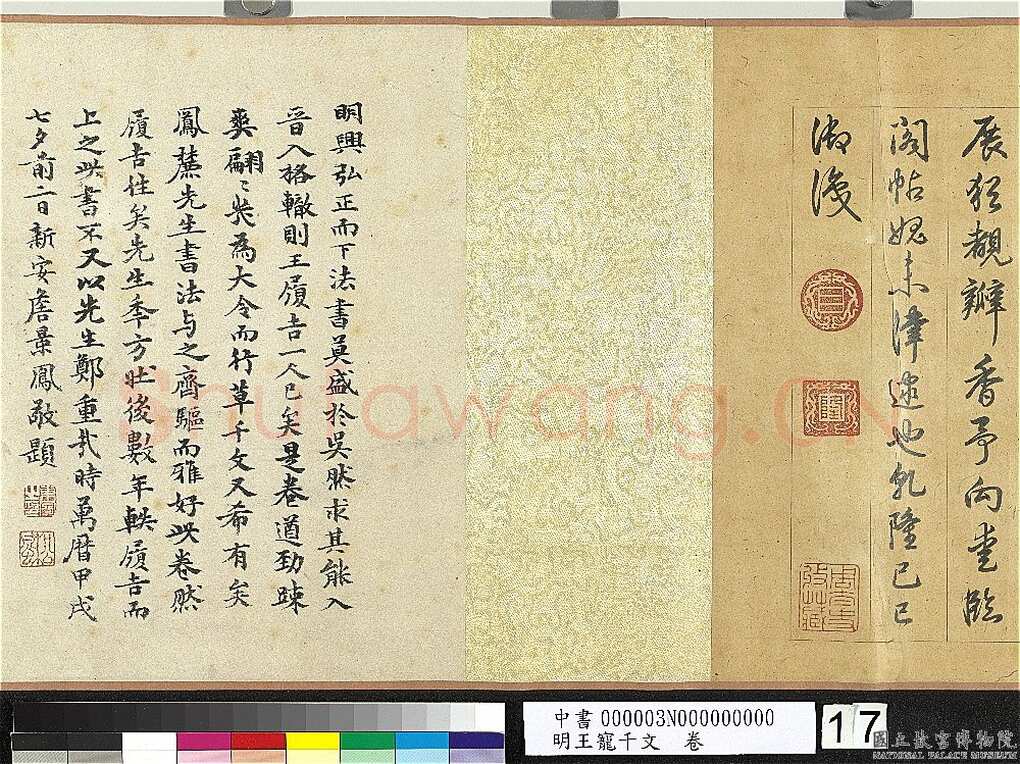 展玩親辦香予向專臨
閣帖媿未津逮也乾隆己巳
御識
明興弘正而下法書莫盛於吳然求其能入
晉入格轍則王履吉一人已矣是卷遒勁疎
爽翩〻然為大令而行草千文又希有矣
鳳麓先生書法與之齊驅而雅好此卷然
履吉往矣先生季方壯後數年軼履吉而
上之此書不又以先生鄭重哉時萬曆甲戌
七夕前二日新安詹景鳳敬題
Shufawang.CN
中書 000003N000000000
明王寵千文 卷
17
國立故宮博物院
NATIONAL PALACE MUSEUM